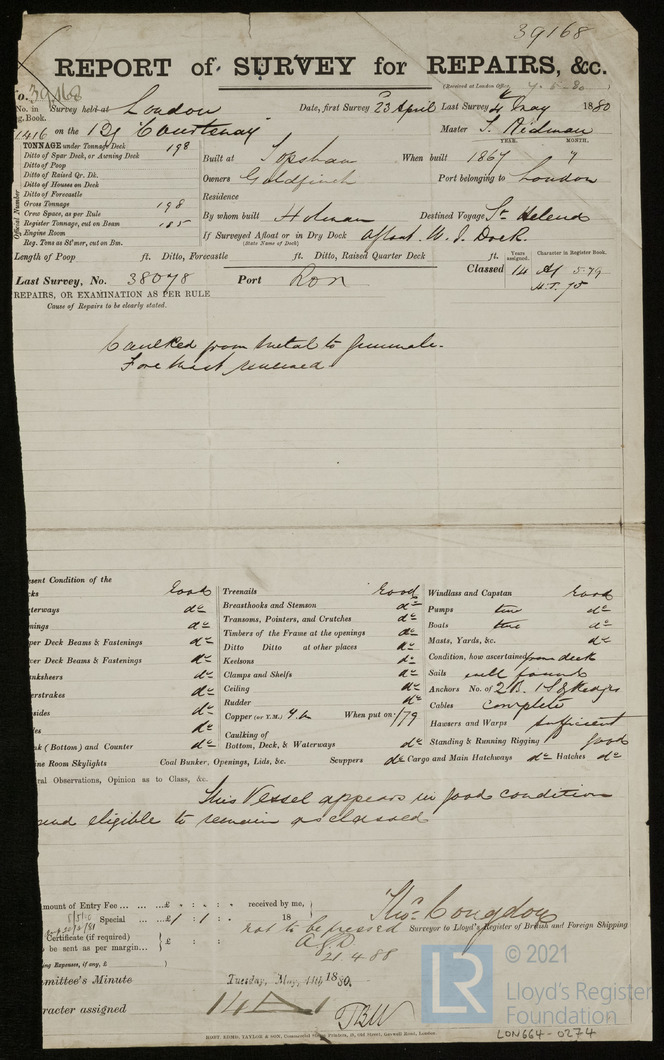 39168
REPORT of SURVEY for REPAIRS, &c.
(Received at London Office 7-5-80)
No. 39168
No. in Survey held at London Date, first Survey 23 April Last Survey 4 May 1880
Reg. Book.
1416 on the Bg Courtenay Master T. Redman
TONNAGE under Tonnage Deck 198
Ditto of Spar Deck, or Awning Deck
Ditto of Poop
Ditto of Raised Qr. Dk.
Ditto of Houses on Deck
Ditto of Forecastle
Gross Tonnage 198
Crew Space, as per Rule
Register Tonnage, cut on Beam 185
Engine Room
Reg. Tons as St'mer, cut on Bm.
Official Number
YEAR. MONTH.
Built at Topsham When built 1867 7
Owners Goldfinch Port belonging to London
Residence
By whom built Holman Destined Voyage St Helena
If Surveyed Afloat or in Dry Dock Afloat W. I. Dock.
(State Name of Dock)
Length of Poop ft. Ditto, Forecastle ft. Ditto, Raised Quarter Deck ft.
Years assigned. Character in Register Book.
Last Survey, No. 38078 Port Lon Classed 14 A1 5.79
REPAIRS, OR EXAMINATION AS PER RULE
Cause of Repairs to be clearly stated.
Caulked from metal to gunwale.
Fore mast renewed
Present Condition of the
cks Good
terways do
mings do
per Deck Beams & Fastenings do
wer Deck Beams & Fastenings do
nksheers do
erstrakes do
sides do
es do
nk (Bottom) and Counter do
ine Room Skylights
Treenails Good
Breasthooks and Stemson do
Transoms, Pointers, and Crutches do
Timbers of the Frame at the openings do
Ditto Ditto at other places do
Keelsons do
Clamps and Shelfs do
Ceiling do
Rudder do
Copper (or Y.M.) When put on /79
Caulking of
Bottom, Deck, & Waterways do
Coal Bunker, Openings, Lids, &c. Scuppers do
Windlass and Capstan Good
Pumps two do
Boats two do
Masts, Yards, &c. do
Condition, how ascertained from deck
Sails well found
Anchors No. of 2B. 1S & Kedges
Cables complete
Hawsers and Warps sufficient
Standing & Running Rigging good
Cargo and Main Hatchways do Hatches do
ral Observations, Opinion as to Class, &c.
This Vessel appears in good condition
and eligible to remain as classed
mount of Entry Fee ... ... ...£ : : received by me,
Special ... ...£1 : 1 : 18
Certificate (if required)
be sent as per margin... £ :
ling Expenses, if any, £
not to be pressed
21.4.88
Thos. Congdon
Surveyor to Lloyd's Register of British and Foreign Shipping
mmittee's Minute Tuesday, May, 11th 1880.
racter assigned 14 A 1
TBW
© 2021
LR
Lloyd's Register
Foundation
LON664-0274